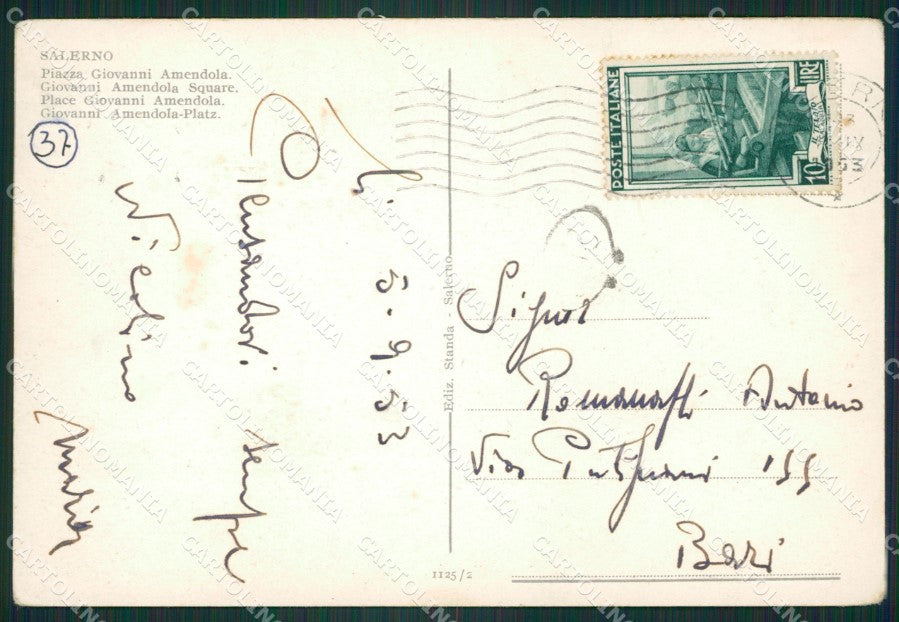 SALERNO
Piazza Giovanni Amendola.
Giovanni Amendola Square.
Place Giovanni Amendola.
Giovanni Amendola-Platz.
37
Li 5.9.53
sempre
Vicino
Maria
Ediz. Standa - Salerno
1125/2
POSTE ITALIANE
10
LIRE
Signor
Romanassi Antonio
Via Putignani 155
Bari
CARTOLINOMANIA